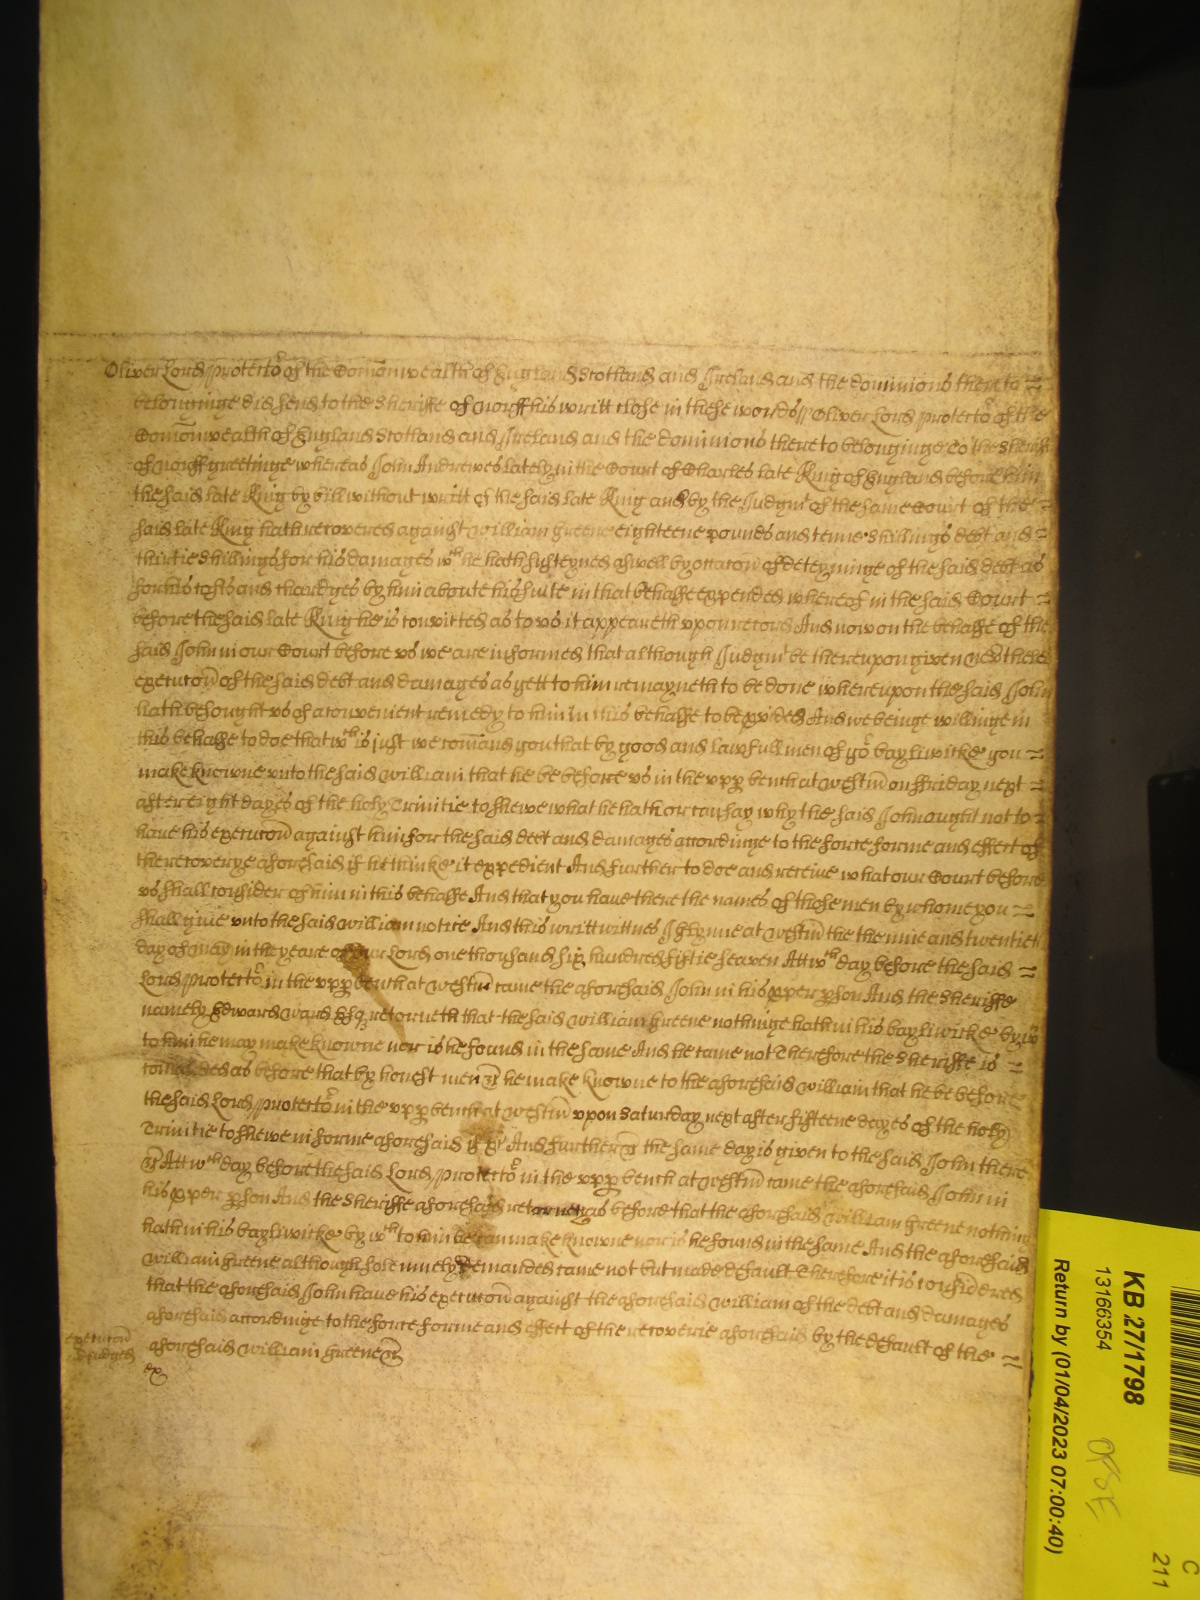 Oliver Lord Protector of the Comonwealth of England Scotland and Ireland and the dominions there to
belonginge did send to the Sheriffe of Norff his writt close in these words Oliver Lord Protector of the
Comonwealth of England Scotland and Ireland and the dominions there to belonginge To the Sheriff
of Norff greetinge whereas John Andrewes lately in the Court of Charles late King of England before him
the said late King by bill without writt of the said late King and by the Judgmt of the same Court of the
said late King hath recovered against William Greene eighteene pounds and tenne shillings debt and
thirtie shillings for his damages wch he hath susteyned aswell by occacon of deteyninge of the said debt as
for his costs and chardges by him aboute his suite in that behalfe expended whereof in the said Court
before the said late King he is convicted as to us it appeareth upon record And now on the behalfe of the
said John in our Court before us we are informed that although Judgmt be thereupon given neverthelesse
execucon of the said debt and damages as yett to him remayneth to be done whereupon the said John
hath besought us of a convenient remedy to him in this behalfe to be pvided And we beinge willinge in
this behalfe to doe that wch is just we comand you that by good and lawfull men of yor bayliwicke you
make knowne unto the said William that he be before us in the upp bench at Westm on Friday next
after eight dayes of the holy Trinitie to shewe what he hath or can say why the said John ought not to
have his execucon against him for the said debt and damages accordinge to the force forme and effect of
the recoverye aforesaid if he thinke it expedient And further to doe and receive what our Court before
us shall consider of him in this behalfe And that you have there the names of those men by whome you
shall give unto the said William notice And this writt wittnes J Glynne at Westm the nine and twentieth
day of May in the yeare of our Lord one thousand six hundred fiftie seaven Att wch day before the said
Lord Protector in the upp bench at Westm came the aforesaid John in his pper pson And the Sheriffe
namely Edward Ward Esq retorneth that the said William Greene nothinge hath in his bayliwicke by wch
to him he may make knowne nor is he found in the same And he came not Therefore the Sheriffe is
comanded as before that by honest men &c he make knowne to the aforesaid William that he be before
the said Lord Protector in the upp bench at Westm upon Saturday next after fifteene dayes of the holy
Trinitie to shewe in forme aforesaid if &c And further &c the same day is given to the said John there
&c Att wch day before the said Lord Protector in the upp bench at Westm came the aforesaid John in
his pper pson And the Sheriffe aforesaid retorneth as before that the aforesaid William Greene nothing
hath in his bayliwicke by wch to him he can make knowne nor is he found in the same And the aforesaid
William Greene although solemnely demanded came not but made default Therefore it is considered
that the aforesaid John have his execucon against the aforesaid William of the debt and damages
aforesaid accordinge to the force forme and effect of the recoverie aforesaid by the default of the
aforesaid William Greene &c
execucon
adjudged
ex
KB 27/1798
13166354
Return by (01/04/2023 07:00:40)
C
211